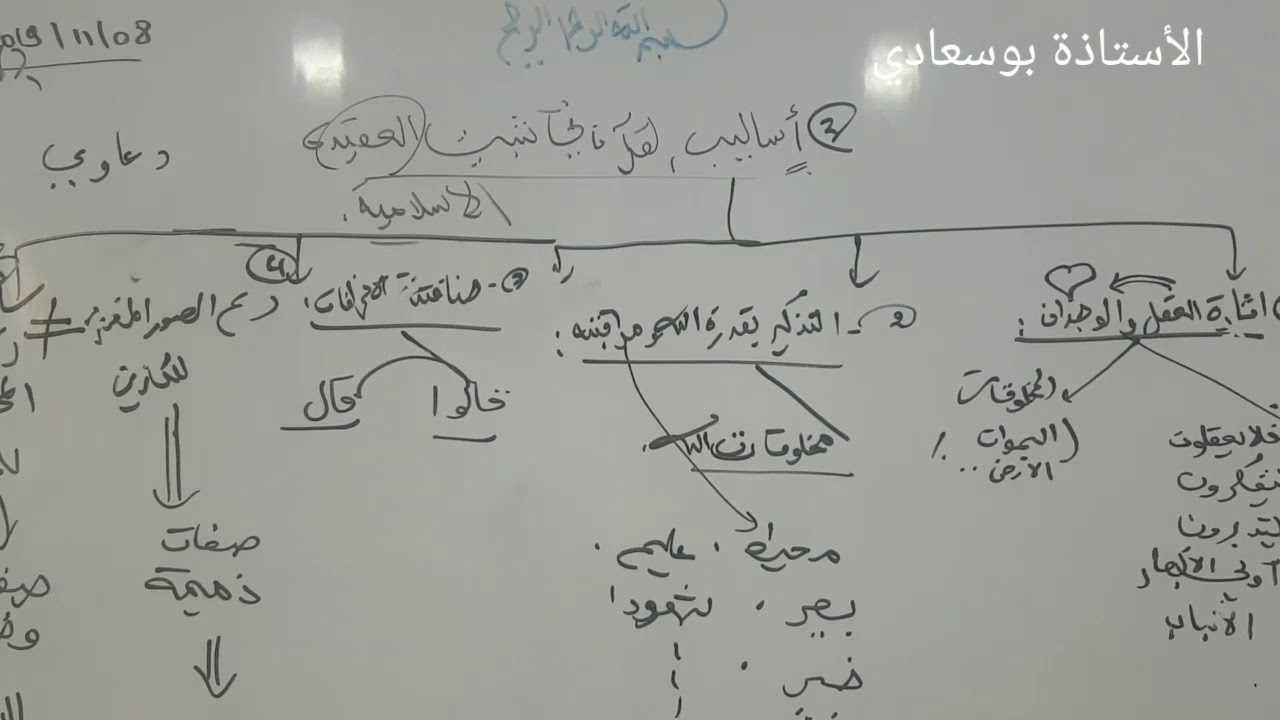 الأستاذة بوسعادي
بسم الله الرحمن الرحيم
08/11/
دعاوي
③ أساليب القرآن في تثبيت العقيدة
الإسلامية.
إثارة العقل والوجدان:
المخلوقات
(السموات
الأرض..
أفلا يعقلون
يتفكرون
يتدبرون
أولي الأبصار
الألباب
2 - التذكير بقدرة الله ومراقبته:
مخلوقات الله.
محيط . عليم .
بصير . شهودا
خبير .
③ - مناقشة الانحرافات:
قالوا
قال
④
رسم الصور المنفرة ≠
للكافرين
صفات
ذميمة